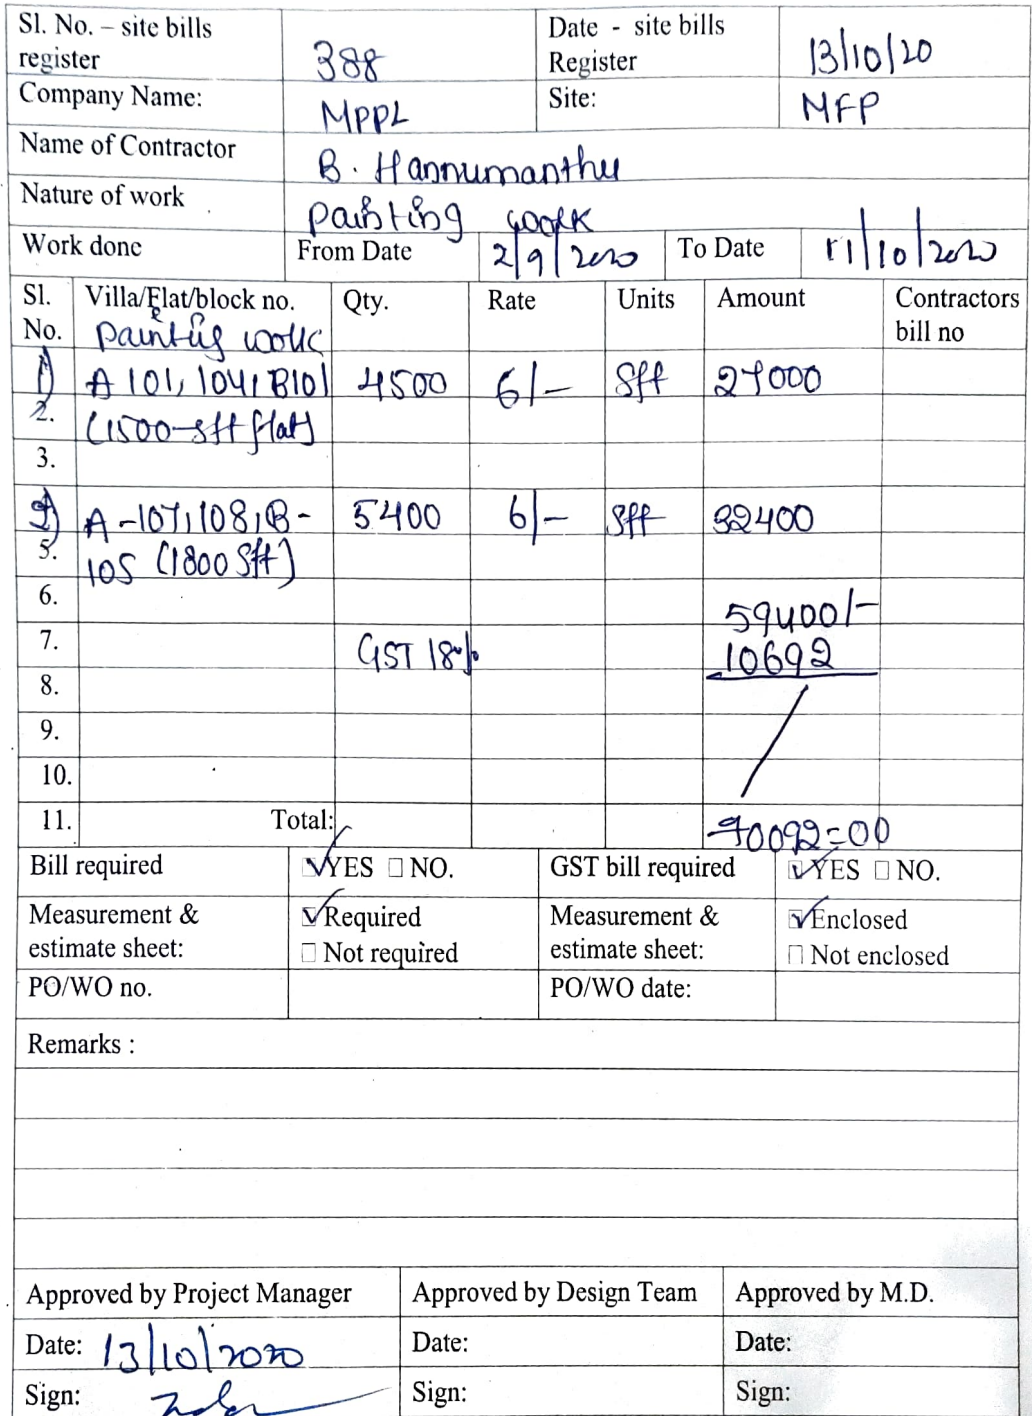 Sl. No. – site bills register 388 Date - site bills Register 13/10/20
Company Name: MPPL Site: MFP
Name of Contractor B. Hannumanthu
Nature of work painting work
Work done From Date 2/9/2020 To Date 11/10/2020
Sl. No. Villa/Flat/block no. Qty. Rate Units Amount Contractors bill no
painting work
1) A 101, 104, B101 4500 6/- Sft 27000
2. (1500-sft flat)
3.
2) A-107,108,B- 5400 6/- Sft 32400
5. 105 (1800 Sft)
6. 59400/-
7. GST 18% 10692
8.
9.
10.
11. Total: 70092=00
Bill required ☑ YES ☐ NO. GST bill required ☑ YES ☐ NO.
Measurement & estimate sheet: ☑ Required Measurement & estimate sheet: ☑ Enclosed
☐ Not required ☐ Not enclosed
PO/WO no. PO/WO date:
Remarks :
Approved by Project Manager Approved by Design Team Approved by M.D.
Date: 13/10/2020 Date: Date:
Sign: Sign: Sign: